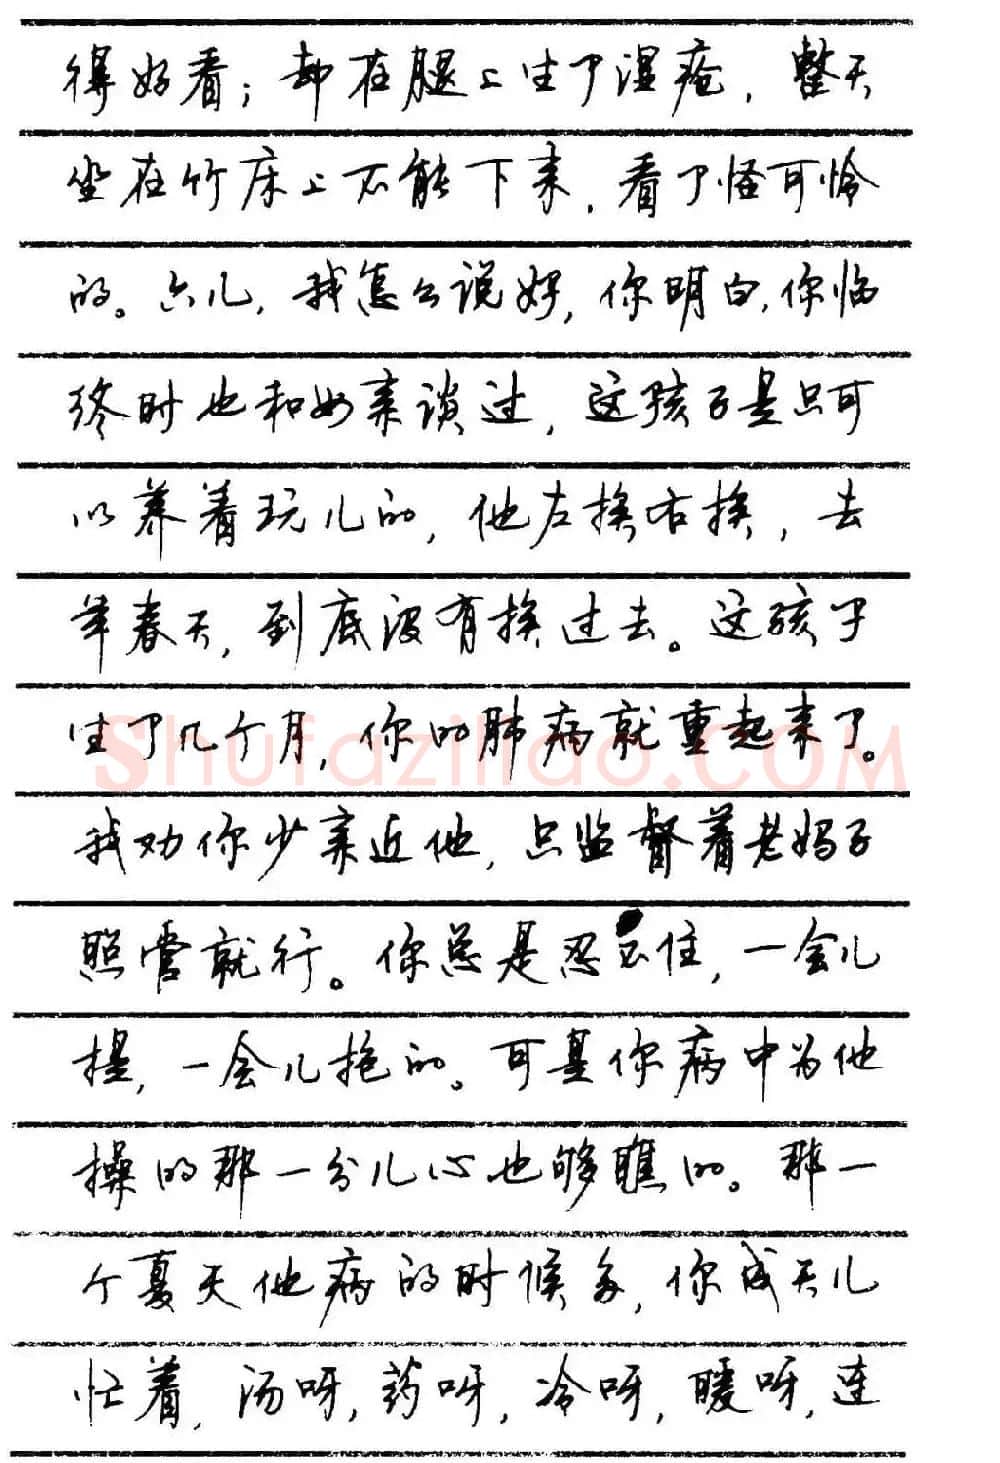 得好看；却在腿上生了湿疮，整天
坐在竹床上不能下来，看了怪可怜
的。六儿，我怎么说好，你明白，你临
终时也和母亲谈过，这孩子是只可
以养着玩儿的，他左挨右挨，去
年春天，到底没有挨过去。这孩子
生了几个月，你的肺病就重起来了。
Shufaziliao.COM
我劝你少亲近他，只监督着老妈子
照管就行。你总是忍不住，一会儿
提，一会儿抱的。可是你病中为他
操的那一分儿心也够瞧的。那一
个夏天他病的时候多，你成天儿
忙着，汤呀，药呀，冷呀，暖呀，连